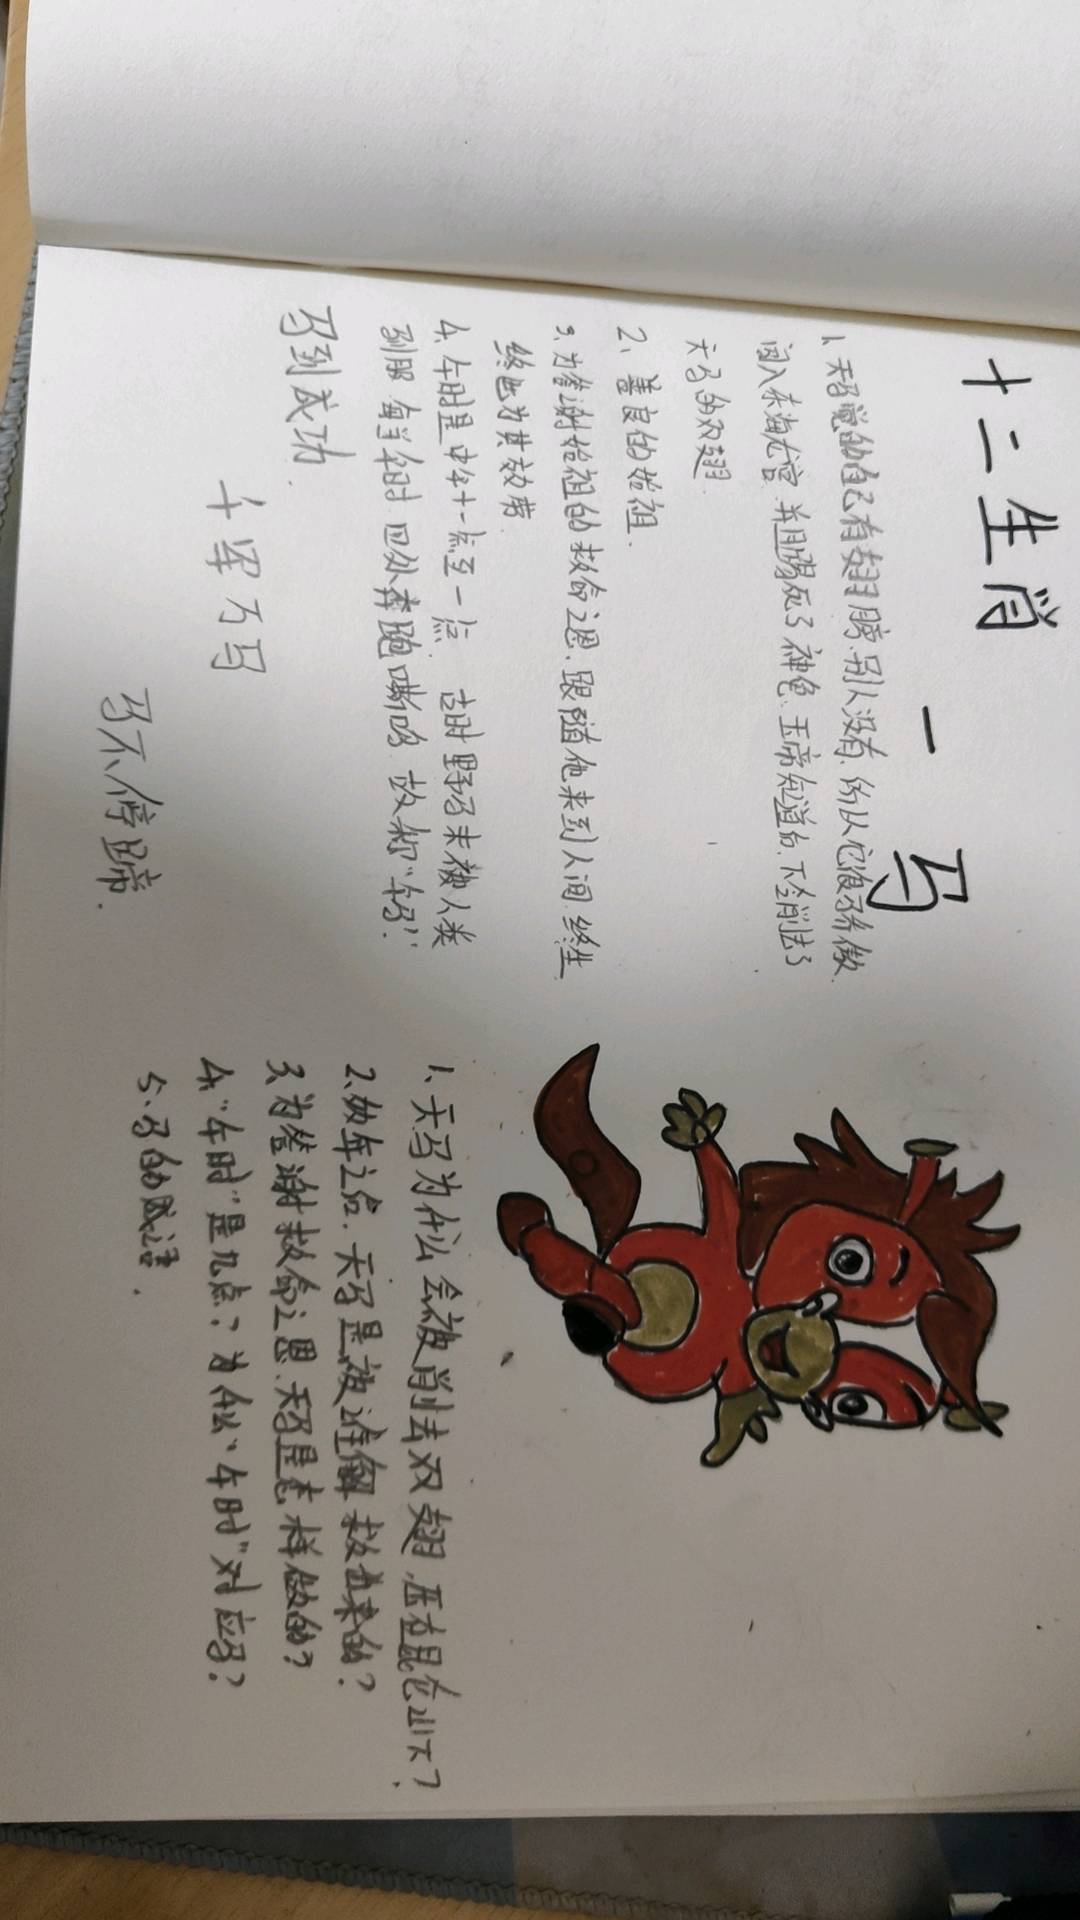 十二生肖 — 马
1、天马觉的自己有翅膀、别人没有、所以它很骄傲.
闯入东海龙宫、并且踢死了神龟、玉帝知道后、下令削去了
天马的双翅.
2、善良的始祖.
3、为答谢始祖的救命之恩、跟随他来到人间、终生
终世为其效劳.
4、午时是中午十一点至一点、古时野马未被人类
驯服、每当午时、四处奔跑嘶鸣、故称“午马”.
马到成功.
千军万马
马不停蹄.
1、天马为什么会被削去双翅、压在昆仑山下?
2、数年之后、天马是被谁解救出来的?
3、为答谢救命之恩、天马是怎样做的?
4、“午时”是几点?为什么“午时”对应马?
5、马的成语.